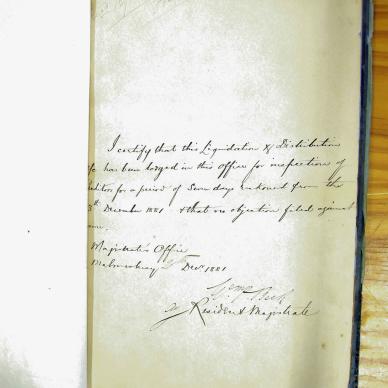 I certify that this Liquidation & Distribution
has been lodged in this office for inspection of
editors for a period of Seven days reckoned from the
th December 1881 & that no objection filed against
Magistrate's Office
Malmesbury Decr 1881
Resident Magistrate